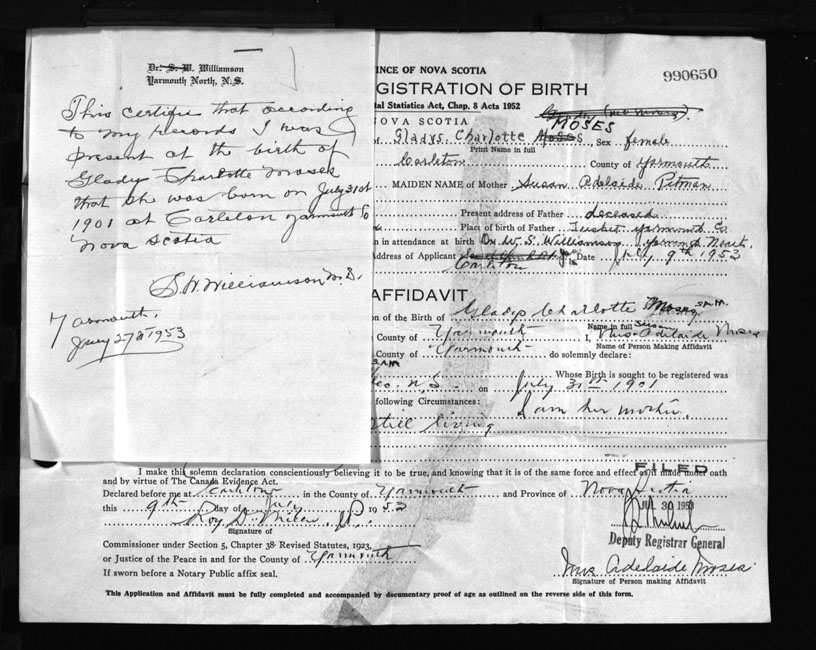 Dr. S. W. Williamson
Yarmouth North, N.S.
This certifies that according
to my records I was
present at the birth of
Gladys Charlotte Moses
that she was born on July 31st
1901 at Carleton Yarmouth Co
Nova Scotia
S.W. Williamson M.D.
Yarmouth,
July 27th 1953
INCE OF NOVA SCOTIA
990650
GISTRATION OF BIRTH
tal Statistics Act, Chap. 8 Acts 1952
NOVA SCOTIA
MOSES
Gladys Charlotte Sex female
Print Name in full
Carleton County of Yarmouth
MAIDEN NAME of Mother Susan Adelaide Pitman
Present address of Father deceased
Place of birth of Father Tusket Yarmouth Co
n in attendance at birth Dr. W. S. Williamson Yarmouth North
ddress of Applicant Date July 9th 1953
Carleton
AFFIDAVIT
on of the Birth of Gladys Charlotte Moses S.A.M.
Name in full Susan
County of Yarmouth I, Mrs. Adelaide Moses
Name of Person Making Affidavit
County of Yarmouth do solemnly declare:
S.A.M.
Co. N.S. on July 31st 1901 Whose Birth is sought to be registered was
following Circumstances: I am her mother.
still living
I make this solemn declaration conscientiously believing it to be true, and knowing that it is of the same force and effect as if made under oath
and by virtue of The Canada Evidence Act.
FILED
Declared before me at Carleton in the County of Yarmouth and Province of Nova Scotia
this 9th day of July 1953
JUL 30 1953
Signature of
Deputy Registrar General
Commissioner under Section 5, Chapter 38 Revised Statutes, 1923,
or Justice of the Peace in and for the County of Yarmouth
Mrs Adelaide Moses
If sworn before a Notary Public affix seal.
Signature of Person making Affidavit
This Application and Affidavit must be fully completed and accompanied by documentary proof of age as outlined on the reverse side of this form.